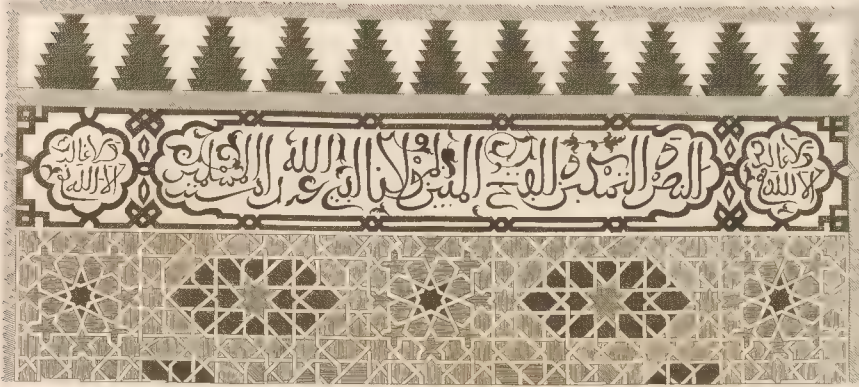 ولا غالب
إلا الله
النصر والتمكين والفتح المبين لمولانا ابي عبد الله امير المسلمين
ولا غالب
إلا الله